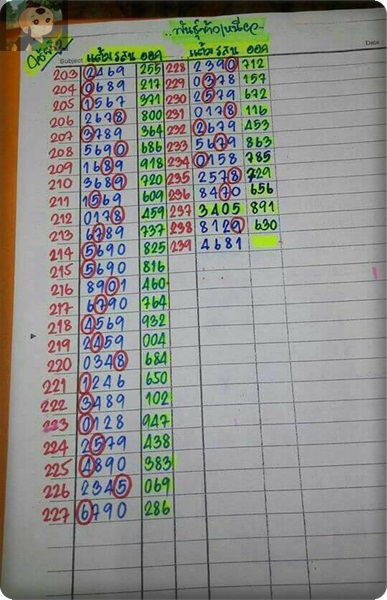 พันธุ์ข้าวเหนียว
Subject
Date
แต้ม รสบ ออก แต้ม รสบ ออก
203 2469 255 228 2390 712
204 0689 217 229 0378 157
205 1567 971 230 2579 672
206 2678 800 231 0178 116
207 3789 364 232 2679 453
208 5690 686 233 5679 863
209 1689 918 234 0158 785
210 3689 720 235 2578 729
211 1569 609 236 8470 656
212 0178 459 237 3405 891
213 6789 737 238 8129 630
214 5690 825 239 4681
215 5690 816
216 8901 460
217 6790 764
218 4569 932
219 2459 004
220 0348 684
221 1246 650
222 3489 102
223 0128 947
224 2579 438
225 4890 383
226 2345 069
227 6790 286